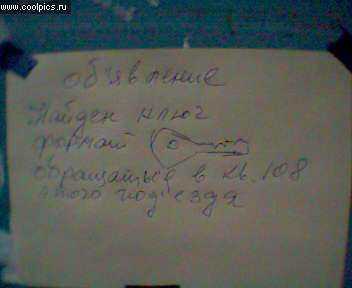 www.coolpics.ru
об'явление
Найден ключ
формат
обращаться в кв. 108
этого под'езда